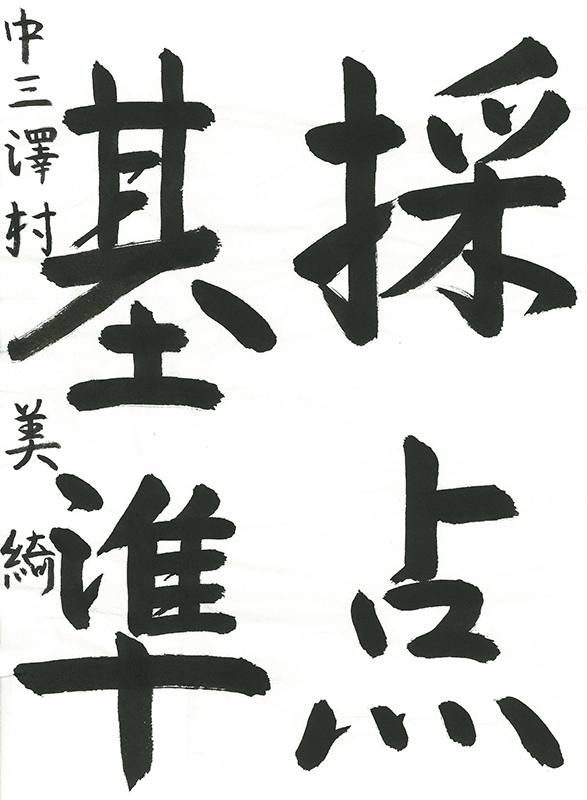 採点
基準
中三澤村美綺